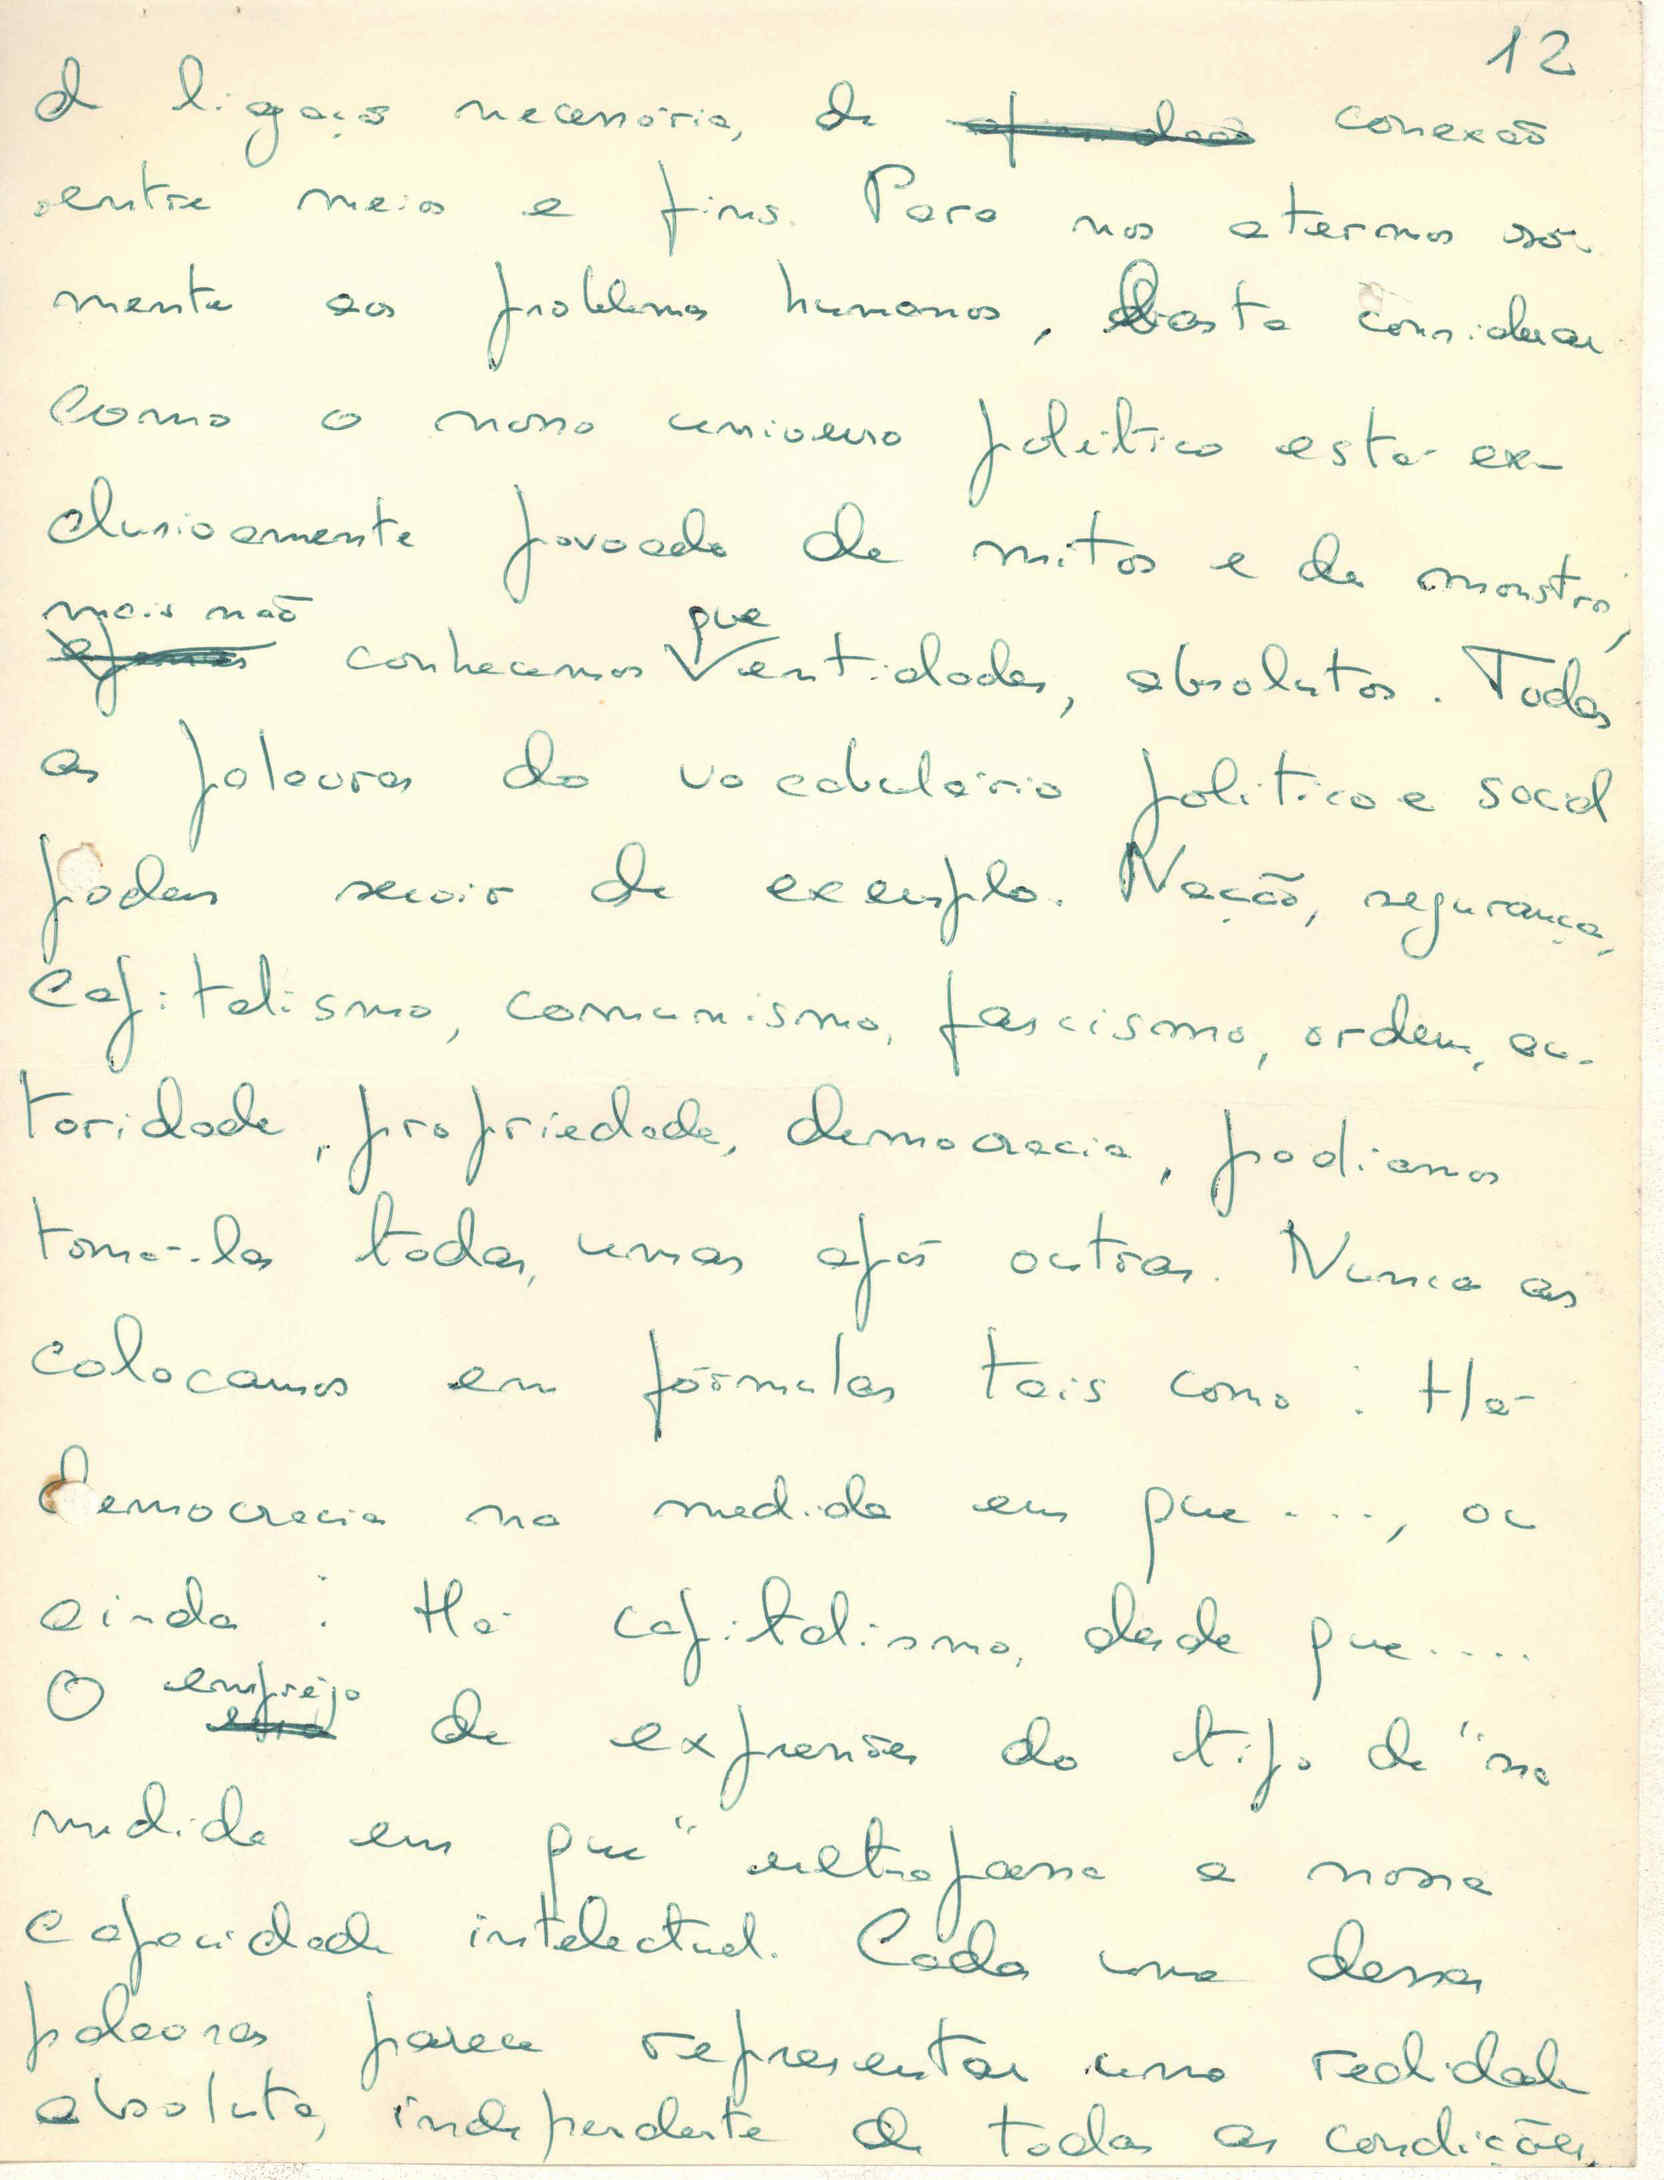 12
de ligação necessária, de conexão
entre meios e fins. Para nos atermos sò-
mente aos problemas humanos, basta considerar
como o nosso universo político está ex-
clusivamente povoado de mitos e de monstros,
mais não conhecemos que entidades, absolutos. Todas
as palavras do vocabulário político e social
podem servir de exemplo. Nação, segurança,
capitalismo, comunismo, fascismo, ordem, au-
toridade, propriedade, democracia, podíamos
tomá-las todas, umas após outras. Nunca as
colocamos em fórmulas tais como : Há
democracia na medida em que ...., ou
ainda : Há capitalismo, desde que ....
O emprêgo de expressões do tipo de "na
medida em que" ultrapassa a nossa
capacidade intelectual. Cada uma dessas
palavras parece representar uma realidade
absoluta, independente de todas as condições,